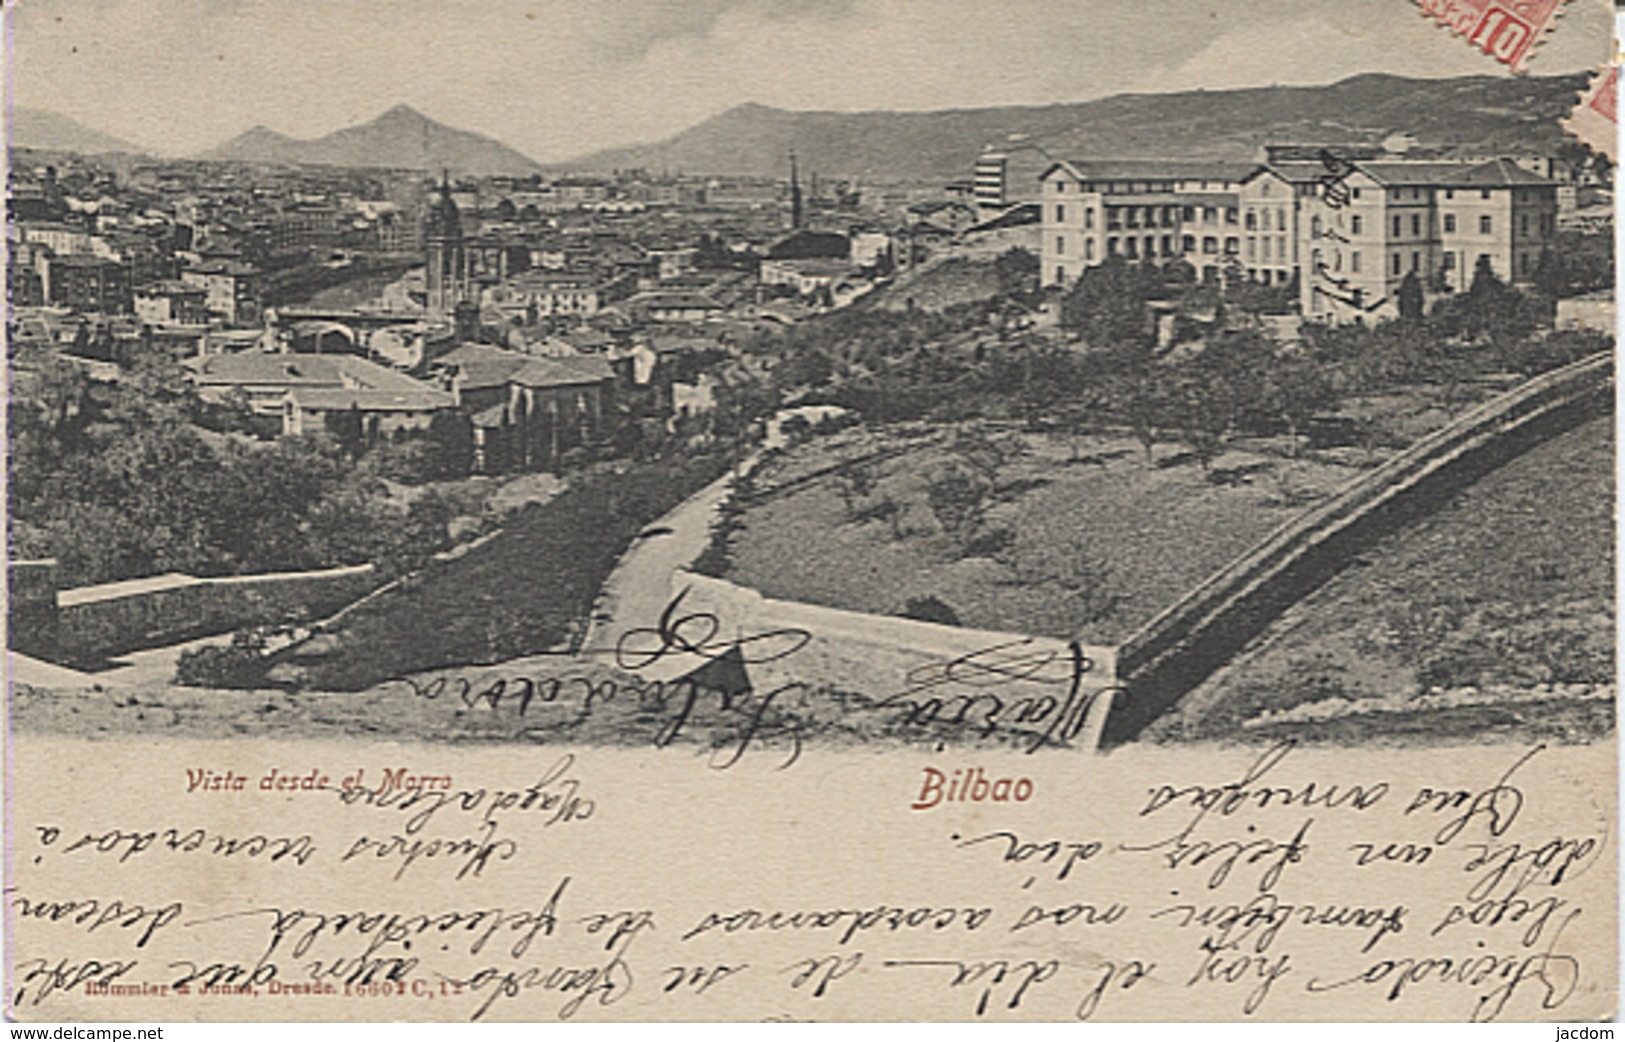 10
Vista desde el Morro
Bilbao
Römmler & Jonas, Dresde. 16602 C, 12
Siendo hoy el dia de su Santo aun que esté
lejos tambien nos acordamos de felicitarla desean
dole un feliz dia.
Sus amigas
Muchos recuerdos á
Magdalena
Maria Salvadora
delcampe.net
jacdom